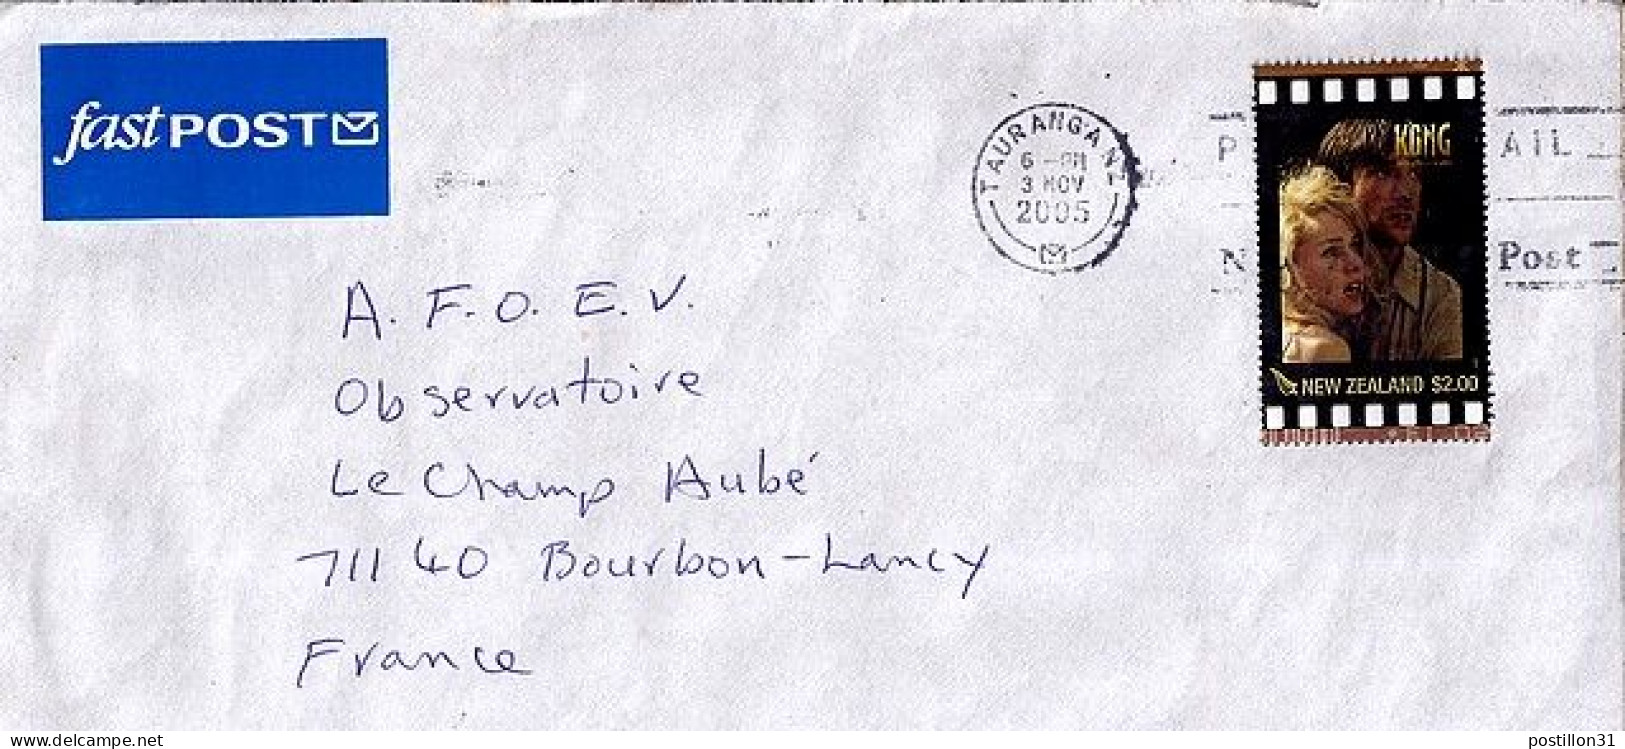 fastPOST
TAURANGA NZ
6 -PM
3 NOV
2005
P AIL
N Post
KONG
NEW ZEALAND $2.00
A. F. O. E. V.
Observatoire
Le Champ Aubé
71140 Bourbon-Lancy
France
www.delcampe.net
postillon31